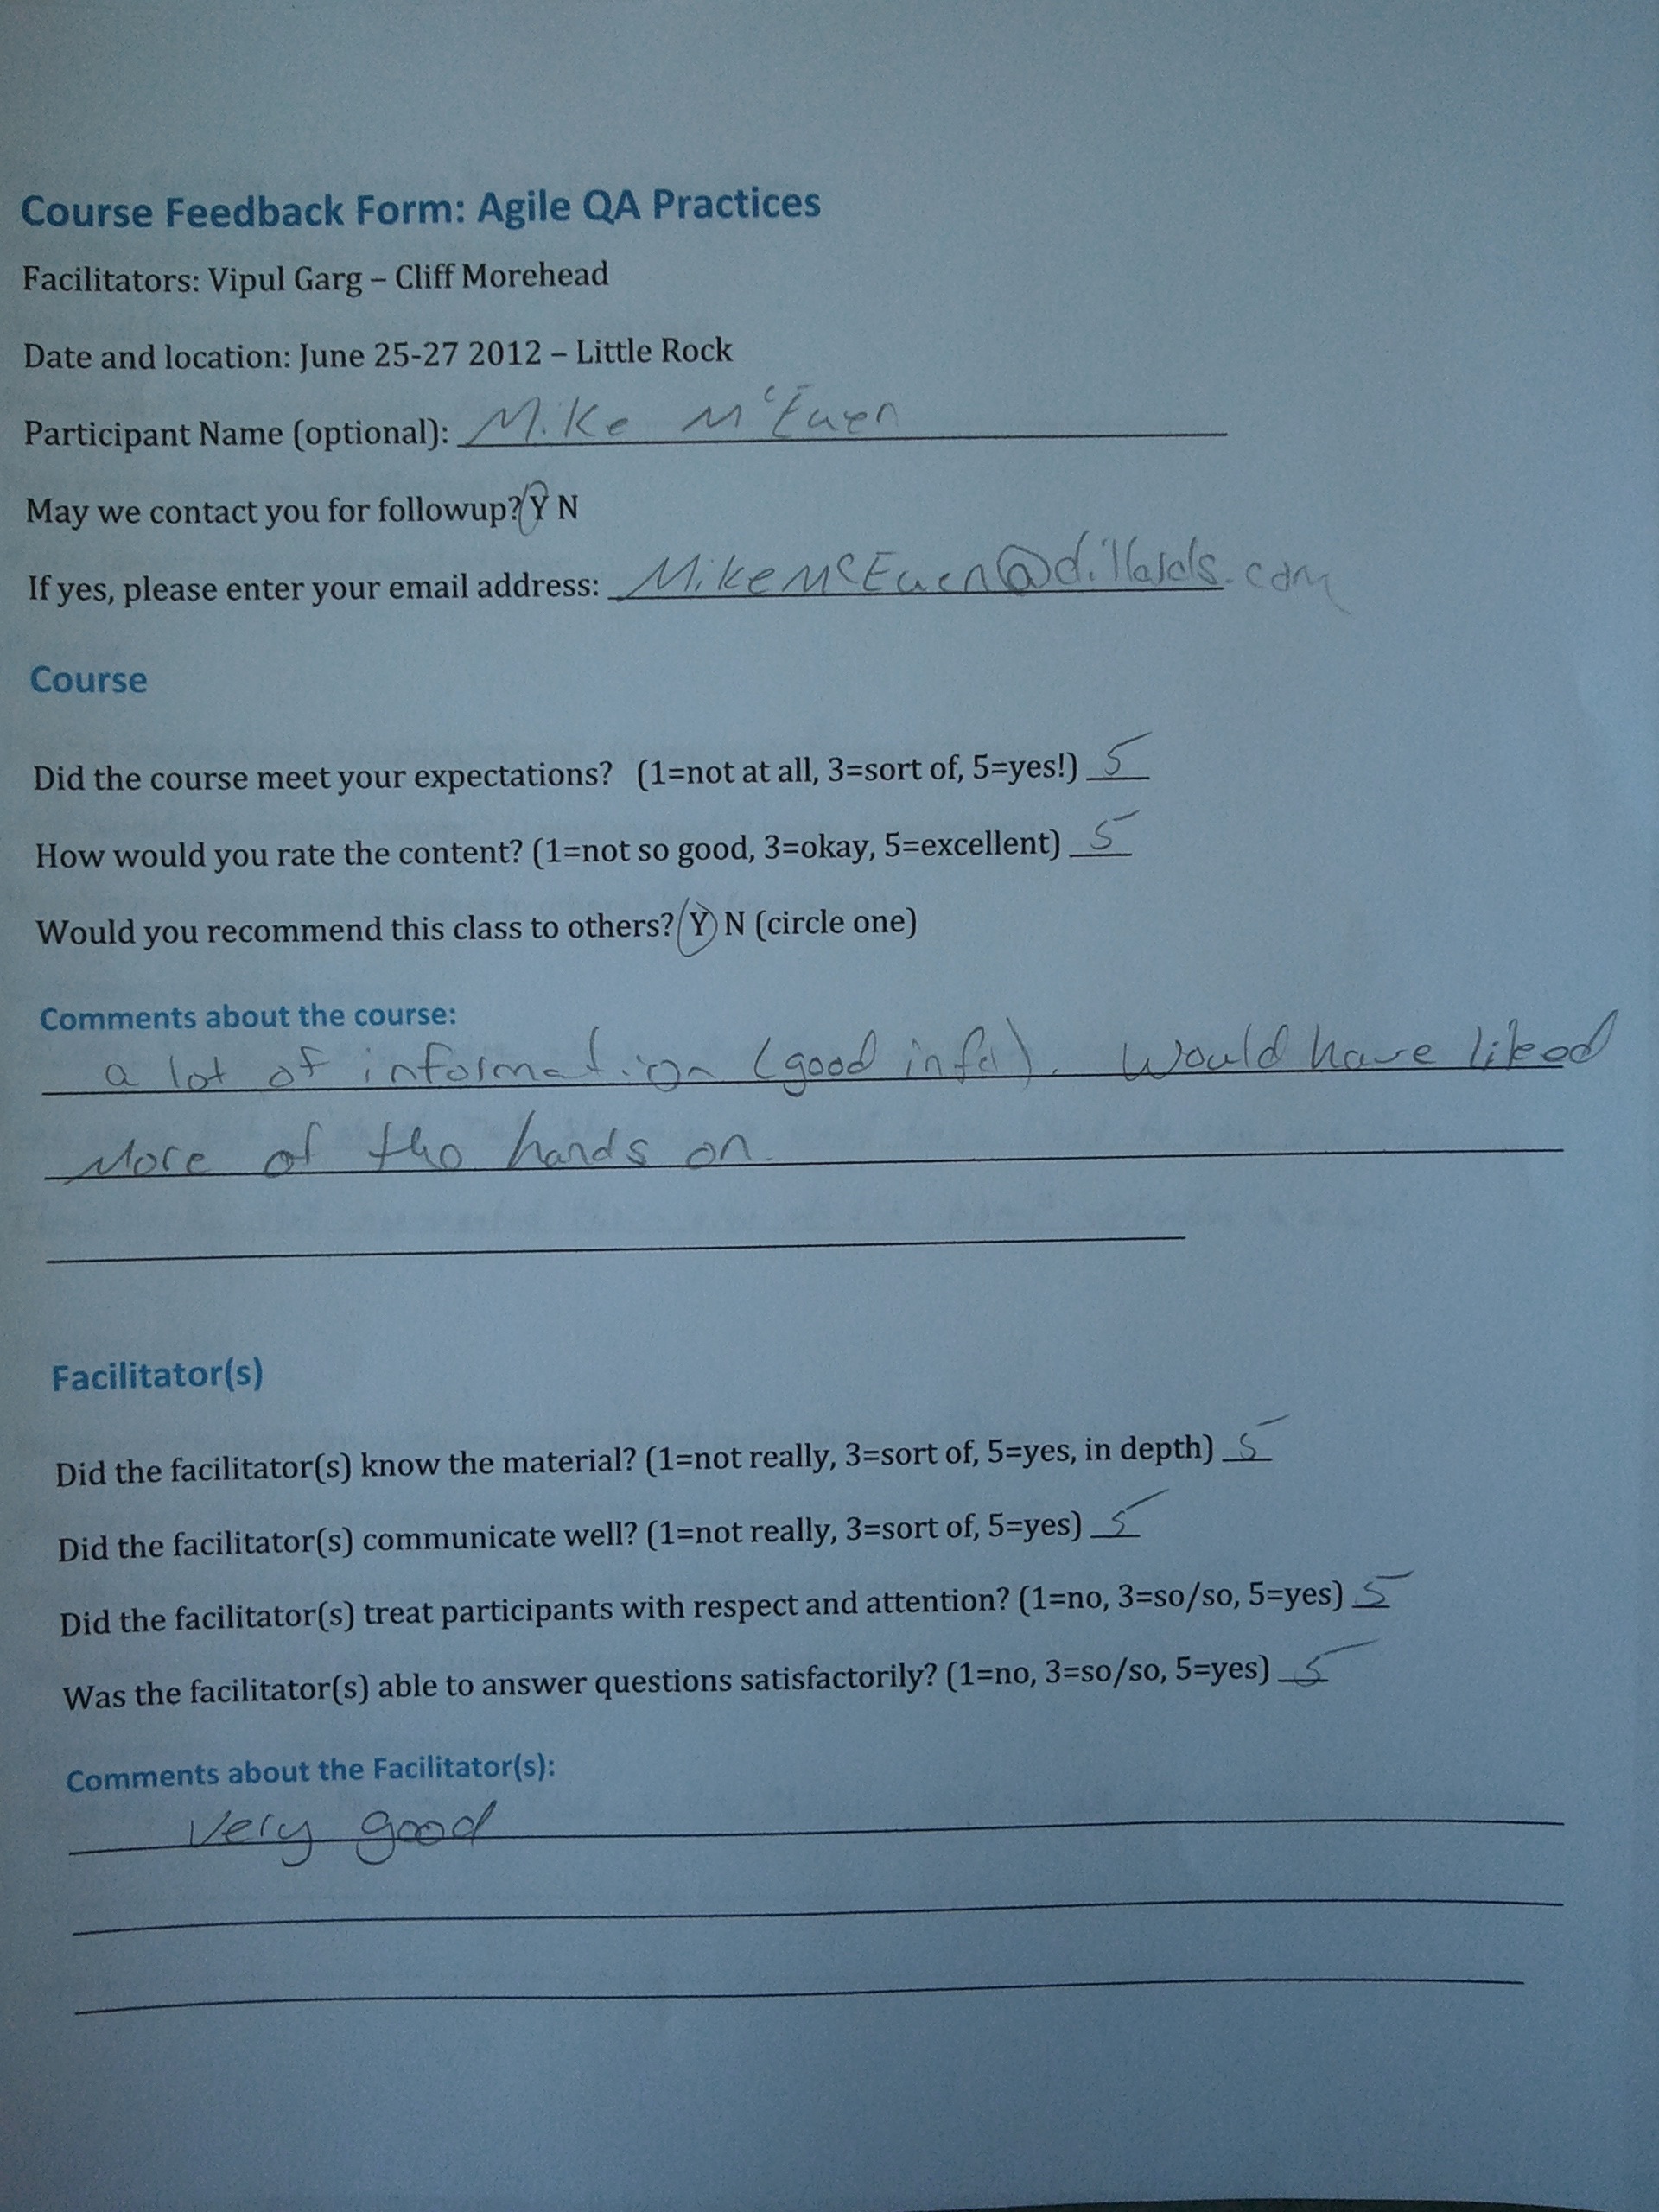 Course Feedback Form: Agile QA Practices
Facilitators: Vipul Garg – Cliff Morehead
Date and location: June 25-27 2012 – Little Rock
Participant Name (optional): Mike McEuen
May we contact you for followup? Y N
If yes, please enter your email address: MikeMcEuen@dillards.com
Course
Did the course meet your expectations? (1=not at all, 3=sort of, 5=yes!) 5
How would you rate the content? (1=not so good, 3=okay, 5=excellent) 5
Would you recommend this class to others? Y N (circle one)
Comments about the course:
a lot of information (good info). Would have liked
More of the hands on.
Facilitator(s)
Did the facilitator(s) know the material? (1=not really, 3=sort of, 5=yes, in depth) 5
Did the facilitator(s) communicate well? (1=not really, 3=sort of, 5=yes) 5
Did the facilitator(s) treat participants with respect and attention? (1=no, 3=so/so, 5=yes) 5
Was the facilitator(s) able to answer questions satisfactorily? (1=no, 3=so/so, 5=yes) 5
Comments about the Facilitator(s):
Very good